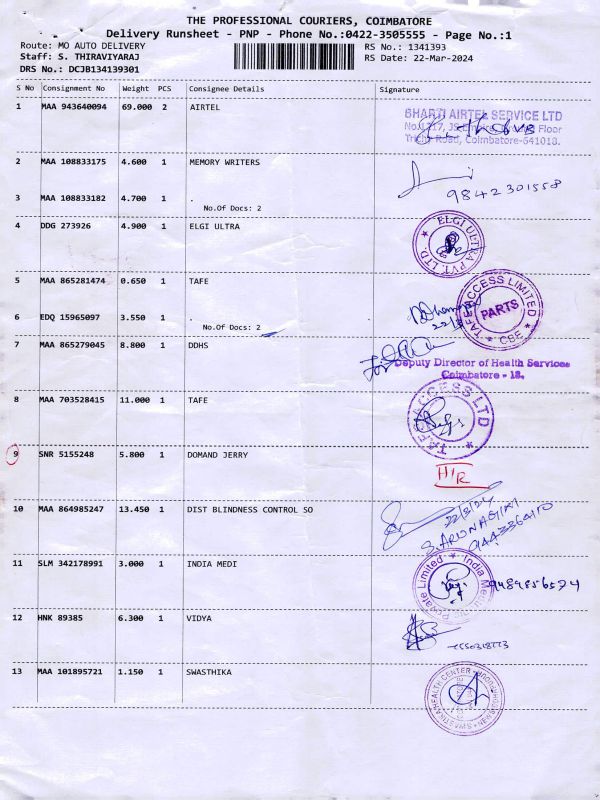 THE PROFESSIONAL COURIERS, COIMBATORE
Delivery Runsheet - PNP - Phone No.:0422-3505555 - Page No.:1
Route: MO AUTO DELIVERY RS No.: 1341393
Staff: S. THIRAVIYARAJ RS Date: 22-Mar-2024
DRS No.: DCJB134139301
S No Consignment No Weight PCS Consignee Details Signature
1 MAA 943640094 69.000 2 AIRTEL
BHARTI AIRTEL SERVICE LTD
Floor
Trichy Road, Coimbatore-641018.
2 MAA 108833175 4.600 1 MEMORY WRITERS
9842301558
3 MAA 108833182 4.700 1 .
No.Of Docs: 2
4 DDG 273926 4.900 1 ELGI ULTRA
ELGI ULTRA PVT. LTD.
5 MAA 865281474 0.650 1 TAFE
TAFE ACCESS LIMITED
PARTS
CBE
6 EDQ 15965097 3.550 1 .
No.Of Docs: 2
7 MAA 865279045 8.800 1 DDHS
Deputy Director of Health Services
Coimbatore - 18.
8 MAA 703528415 11.000 1 TAFE
TAFE ACCESS LTD
9 SNR 5155248 5.800 1 DOMAND JERRY
H/R
10 MAA 864985247 13.450 1 DIST BLINDNESS CONTROL SO
22/3/24
S. ARUNAGIRI
11 SLM 342178991 3.000 1 INDIA MEDI
India Private Limited
9489856574
12 HNK 89385 6.300 1 VIDYA
13 MAA 101895721 1.150 1 SWASTHIKA
SWASTHIKA HEALTH CENTER